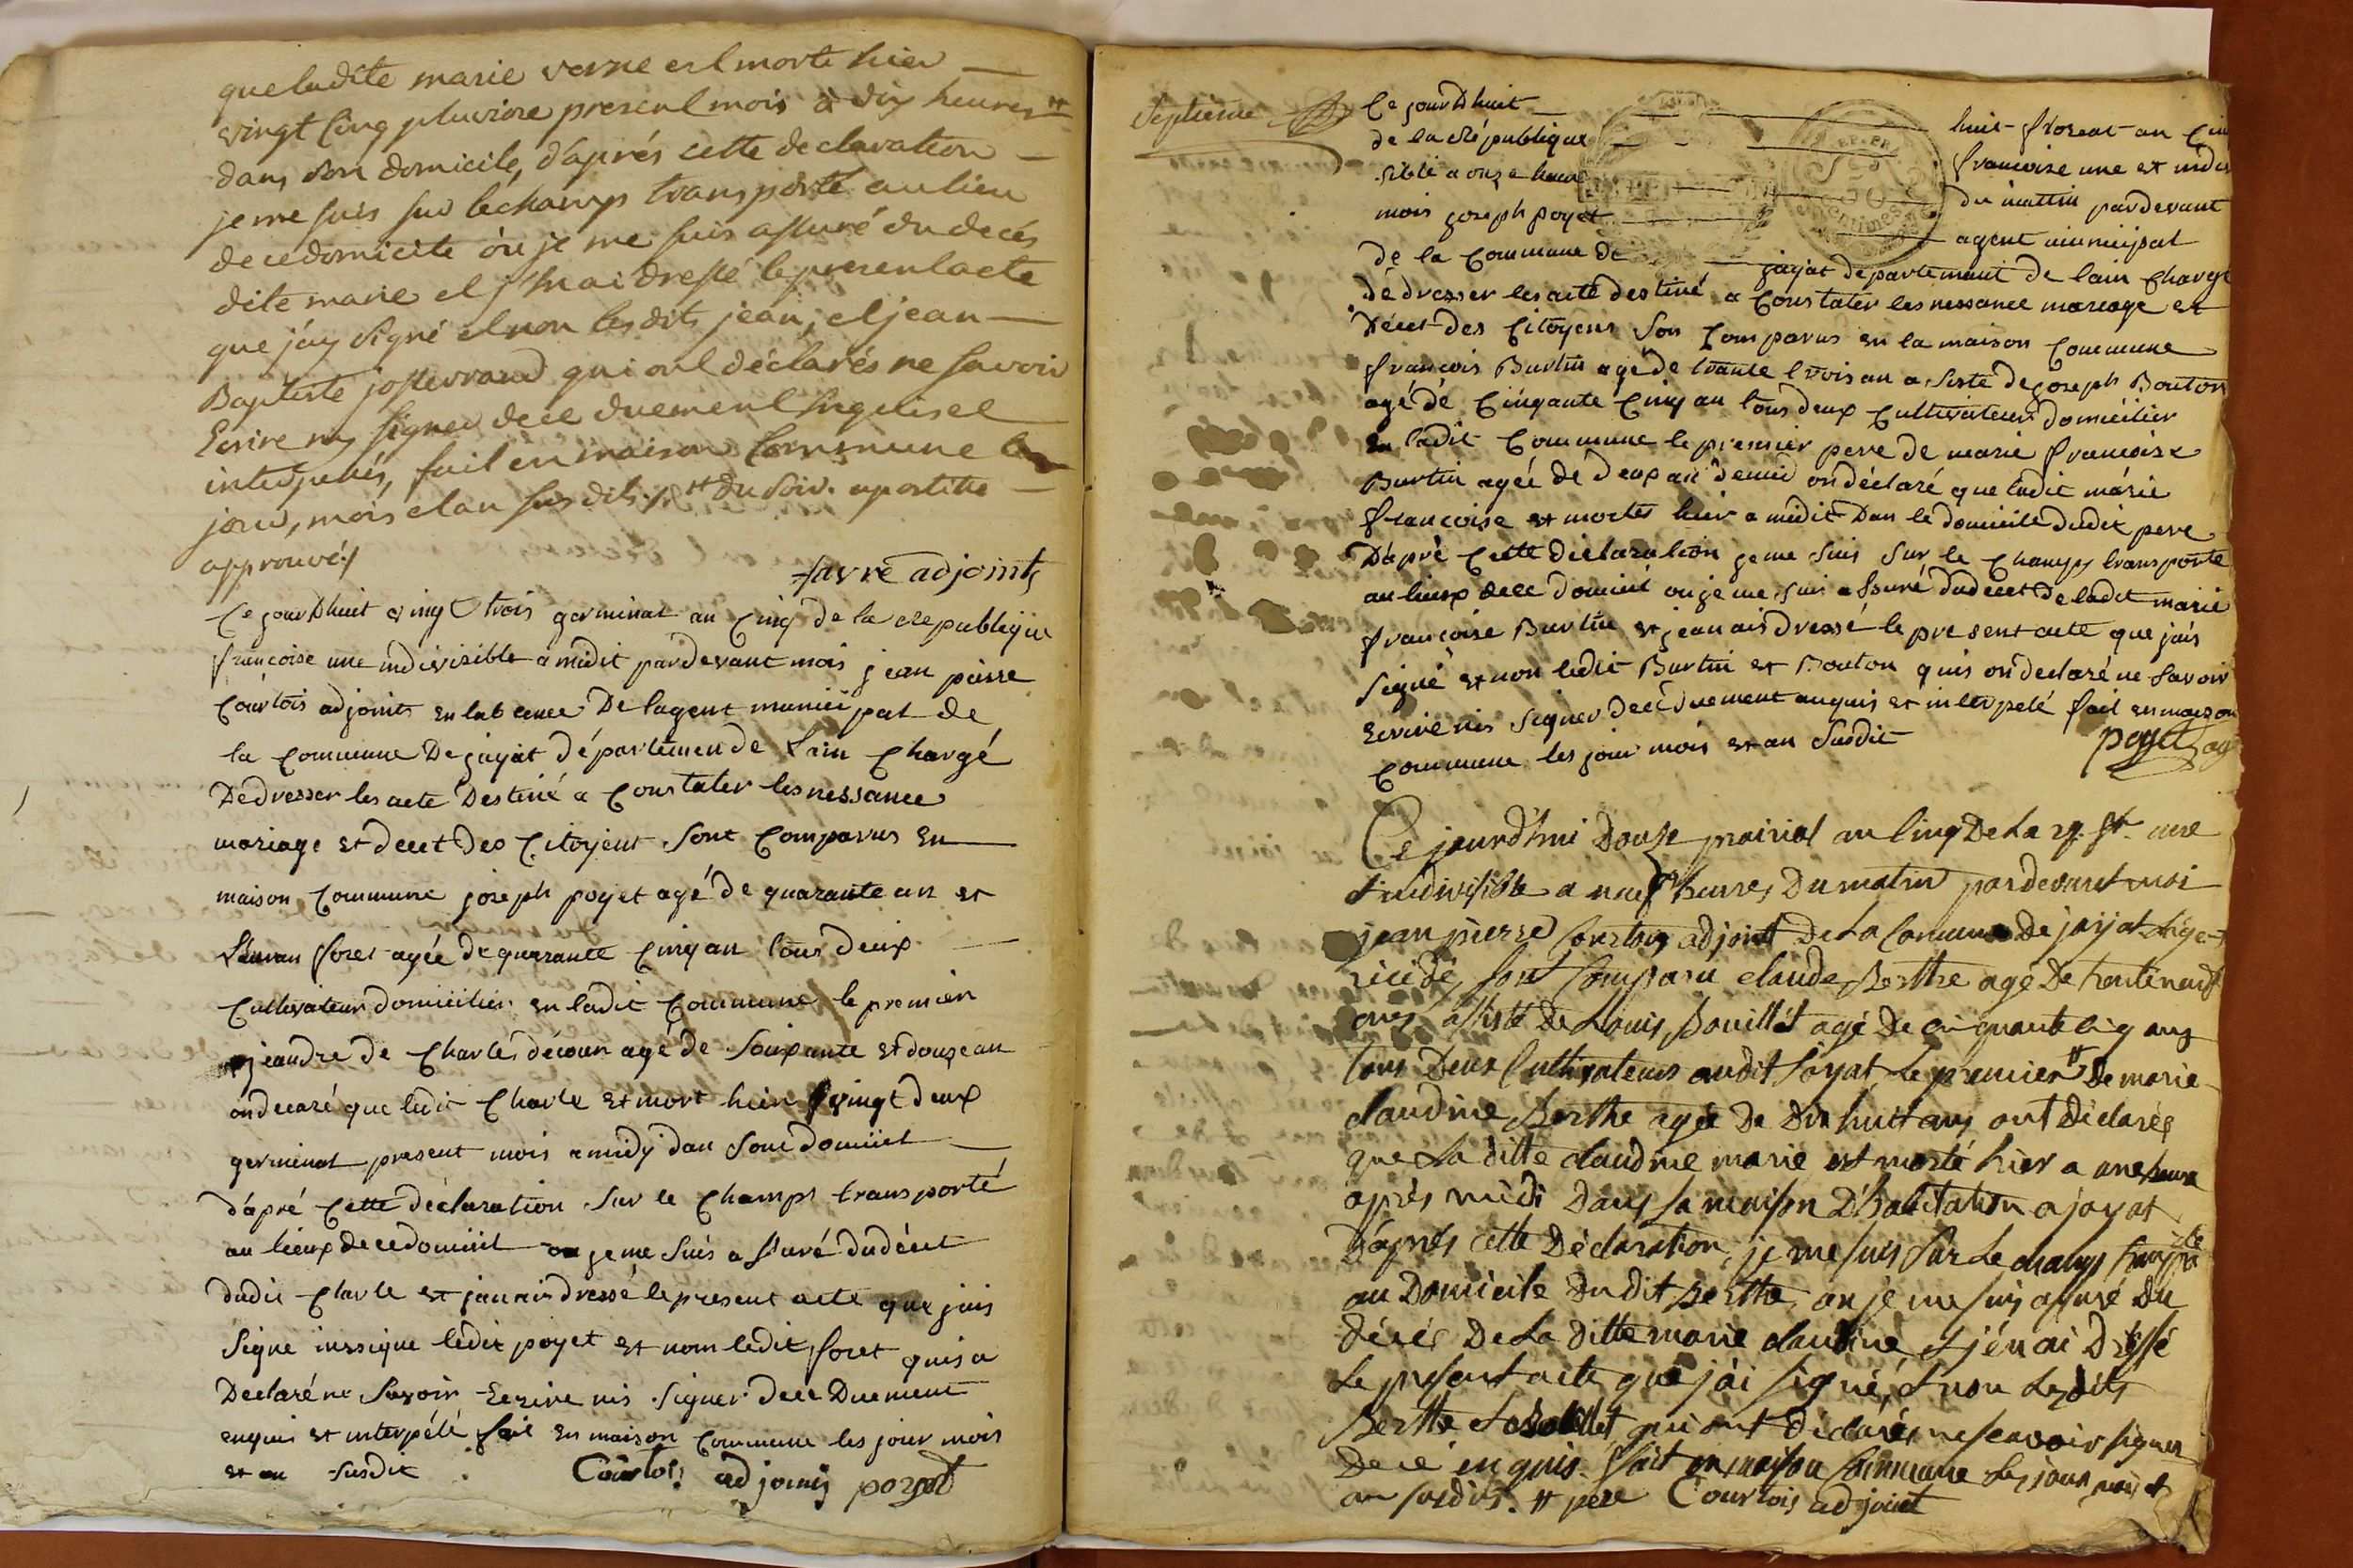 que ladite marie verne est morte hier
vingt cinq pluviose present mois à dix heures #
dans son domicile, d'aprés cette declaration
je me suis sur le champs transporté au lieu
de ce domicile où je me suis assuré du decés
dite marie et j'en ai dressé le present acte
que j'ay signé et non lesdits jean, et jean
Baptiste josserrand qui ont déclarés ne savoir
Ecrire ny signer de ce duement enquis et
interpellés, fait en maison Commune les
jour, mois et an susdits. # du soir. apostille
approuvé /
favre adjoints
Ce jourDhuit vingt trois germinal an Cinq de la republique
francoise une indivisible a midit pardevant mois jean pierre
Courtois adjoints en labcence De lagent municipal de
la Commune De jayat département de Lain Chargé
De dresser les acte Destiné a Constater les nessance
mariage et decet des Citoyent sont Comparus En
maison Commune joseph poyet agé de quarante un et
foret agée de quarante Cinq an tous deux
Cultivateur domicilier en ladit Commune le premier
jeandre de Charles décour agé de soixante et douze an
on decaré que ledit Charle et mort hier vingt deux
germinal present mois a midy dan sont domiciel
d'apré Cette déclaration sur le Champs transporté
au lieux de ce domiciel ou je me suis assuré du décet
dudit Charle et jan nais dressé le present acte que jais
signe ledit poyet et nom ledit foret quis a
Declaré ne savoir Ecrire nis signer de ce Duement
enquis et interpélé fait en maison Commune les jour mois
et an susdit. Courtois adjoint poyet
septieme
Ce jourDhuit huit floreal an Cin
de la République francoise une et indi
sible a onze heure du mattin pardevant
mois joseph poyet agent municipal
de la Commune de jayat departement de lain Chargé
de dresser les acte destiné a Constater les nessance mariage et
Décet des Citoyens son Comparus en la maison Commune
francois Burtin agé de trante trois an a sisté de joseph Bouton
agé de Cinqante Cinq an tous deux Cultivateur domicilier
En ladit Commune le premier pere de marie francoise
Burtin agée de deux an demie on déclaré que ladit marie
francoise et mortes hier a midit Dan le domicile dudit pere
D'apré Cette déclaration je me suis sur le Champs transporté
au lieux de ce domicil ou je me suis assuré du decet de ladit marie
francoise Burtin et jean ais dressé le present acte que jais
signé et non ledit Burtin et Bouton quis on declaré ne savoir
Ecrire nis signer de ce duement anquis et interpelé fait en maison
Commune les jour mois et an susdit
poyet ag
Ce jourd'hui Douze prairial an Cinq De La rep. fr. une
et indivisible a neuf heures Du matin pardevant moi
jean pierre Courtois adjoint De La Comune De jayat
sont Comparu claude Berthe agé De trente neuf
ans assisté De Louis Bouillet agé De cinquante cinq ans
tous Deux Cultivateurs audit Jayat Le premier # De marie
claudine Berthe agée De Dix huit ans ont Déclarés
que La ditte claudine marie est morte hier a une heure
après midi Dans sa maison D'habitation a jayat
D'après cette Déclaration, je me suis sur Le champs transporté
au Domicile Du dit Berthe, ou je me suis assuré Du
Décès De La ditte marie claudine et j'en ai Dressé
Le présent acte que j'ai signé, et non Lesdits
Berthe et Bouillet qui ont déclarés ne scavoir signer
De ce enquis. fait en maison Commune Les jour, mois et
an susdits. # pere Courtois adjoint